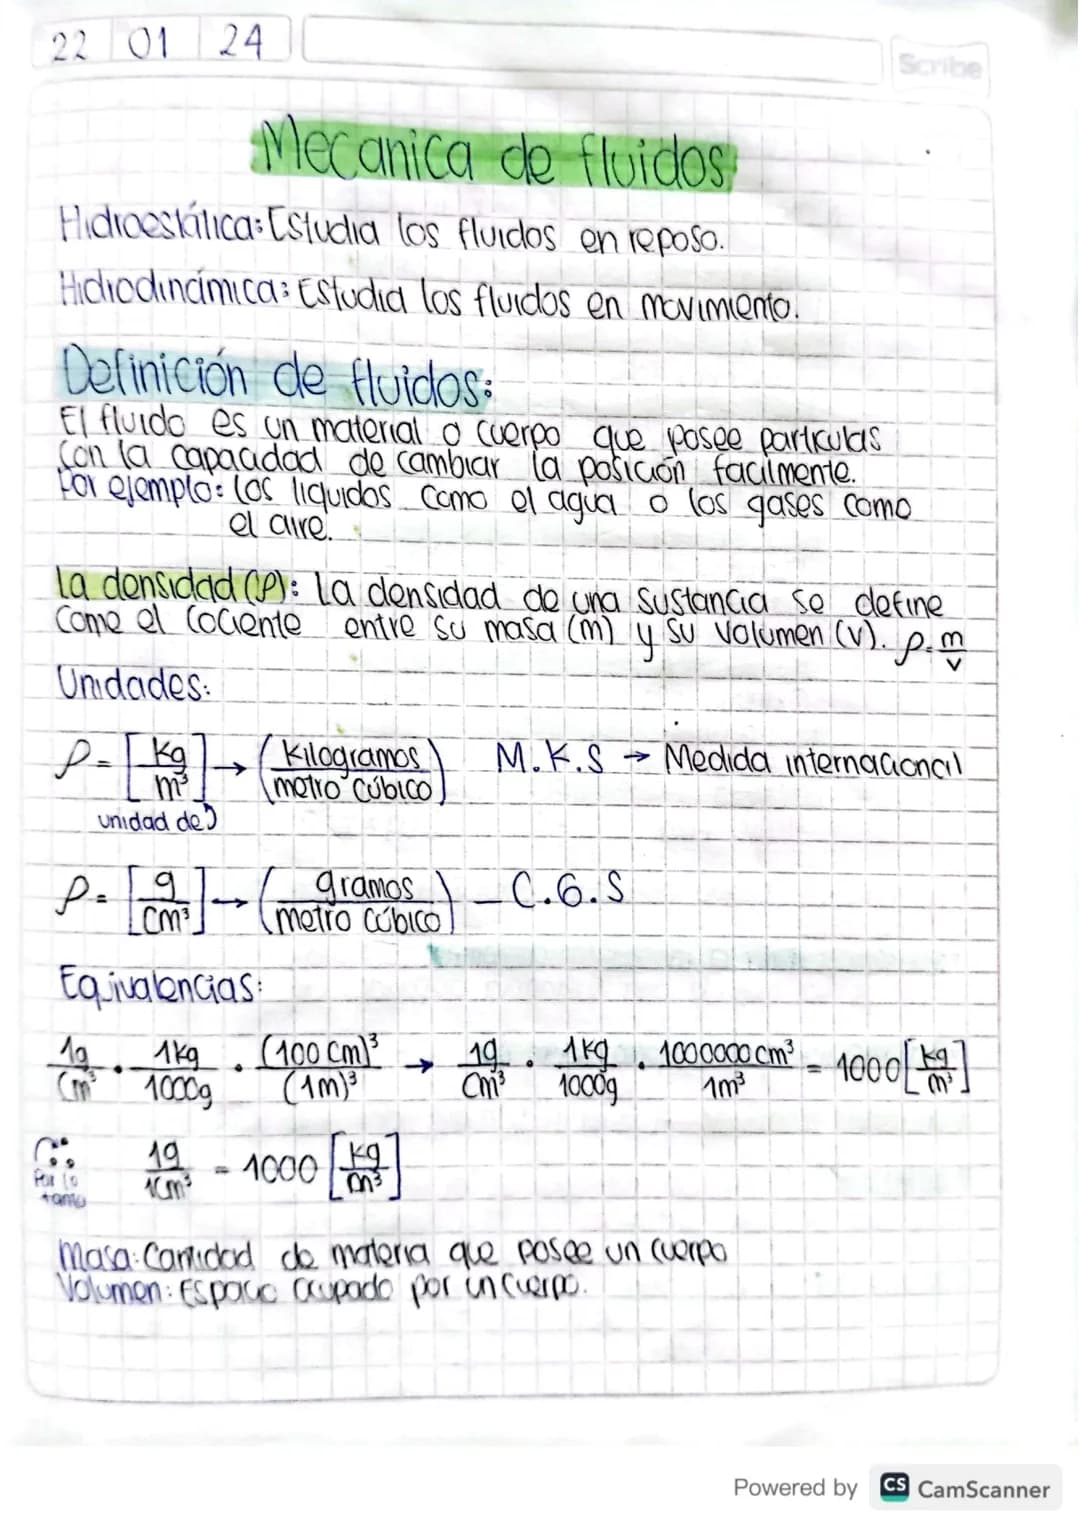 22 01 24
Scribe
Mecanica de fluidos
Hidroestática: Estudia los fluidos en reposo.
Hidrodinámica: Estudia los fluidos en movimiento.
Definición de fluidos:
El fluido es un material o cuerpo que posee particulas
con la capacidad de cambiar la posición facilmente.
Por ejemplo: los liquidos como el agua o los gases como
el aire.
La densidad (ρ): La densidad de una sustancia se define
como el cociente entre su masa (m) y su volumen (v). ρ = m/v
Unidades:
ρ = [kg/m³] → (Kilogramos/metro cúbico) M.K.S → Medida internacional
unidad de
ρ = [g/cm³] → (gramos/metro cúbico) – C.G.S
Equivalencias:
1g/cm³ · 1kg/1000g · (100 cm)³/(1m)³ → 1g/cm³ · 1kg/1000g · 1000000 cm³/1m³ = 1000 [kg/m³]
Por lo tanto 1g/1cm³ = 1000 [kg/m³]
Masa: Cantidad de materia que posee un cuerpo
Volumen: Espacio ocupado por un cuerpo.
Powered by CS CamScanner